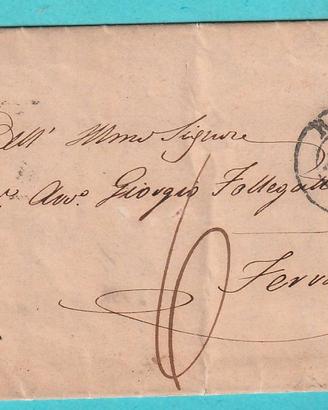 Dell' Illmo Signore
Avv.o Giorgio Follegat
Ferra
6